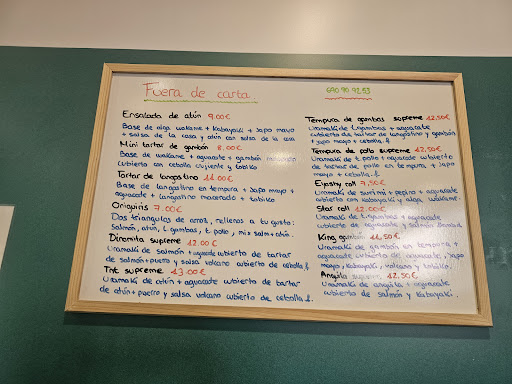 Fuera de carta
Ensalada de atún 9.00€
Base de alga wakame + Kabayaki + Japo mayo
+ salsa de la casa y atún con salsa de la casa
Mini tartar de gambón 8.00€
Base de wakame + aguacate + gambón macerado
cubierto con cebolla crujiente y tobiko
Tartar de langostino 11.00€
Base de langostino en tempura + Japo mayo +
aguacate + langostino macerado + tobiko
Oniguiris 7.00€
Dos triangulos de arroz, rellenos a tu gusto:
salmón, atún, L. gambas, t. pollo, mix salm+atún.
Dinamita supreme 12.00€
Uramaki de salmón + aguacate cubierto de tartar
de salmón + puerro y salsa volcano cubierto de cebolla f.
Tnt supreme 13.00€
Uramaki de atún + aguacate cubierto de tartar
de atún + puerro y salsa volcano cubierto de cebolla f.
690 90 92 53
Tempura de gambas supreme 12.50€
Uramaki de t. gambas + aguacate
cubierto de tartar de langostino y gambón
+ japo mayo + cebolla f.
Tempura de pollo supreme 12.50€
Uramaki de t. pollo + aguacate cubierto
de tartar de pollo en tempura + Japo
mayo + cebolla f.
roll 7.50€
Uramaki de surimi + pepino + aguacate
cubierto con kabayaki y alga wakame.
Star roll 12.00€
Uramaki de t. gambas + aguacate
cubierto de aguacate y salmón
King gambón 11.50€
Uramaki de gambón en tempura +
aguacate cubierto de aguacate, japo
mayo, kabayaki, volcano y tobiko.
Anguila supreme 12.50€
Uramaki de anguila + aguacate
cubierto de salmón y Kabayaki.